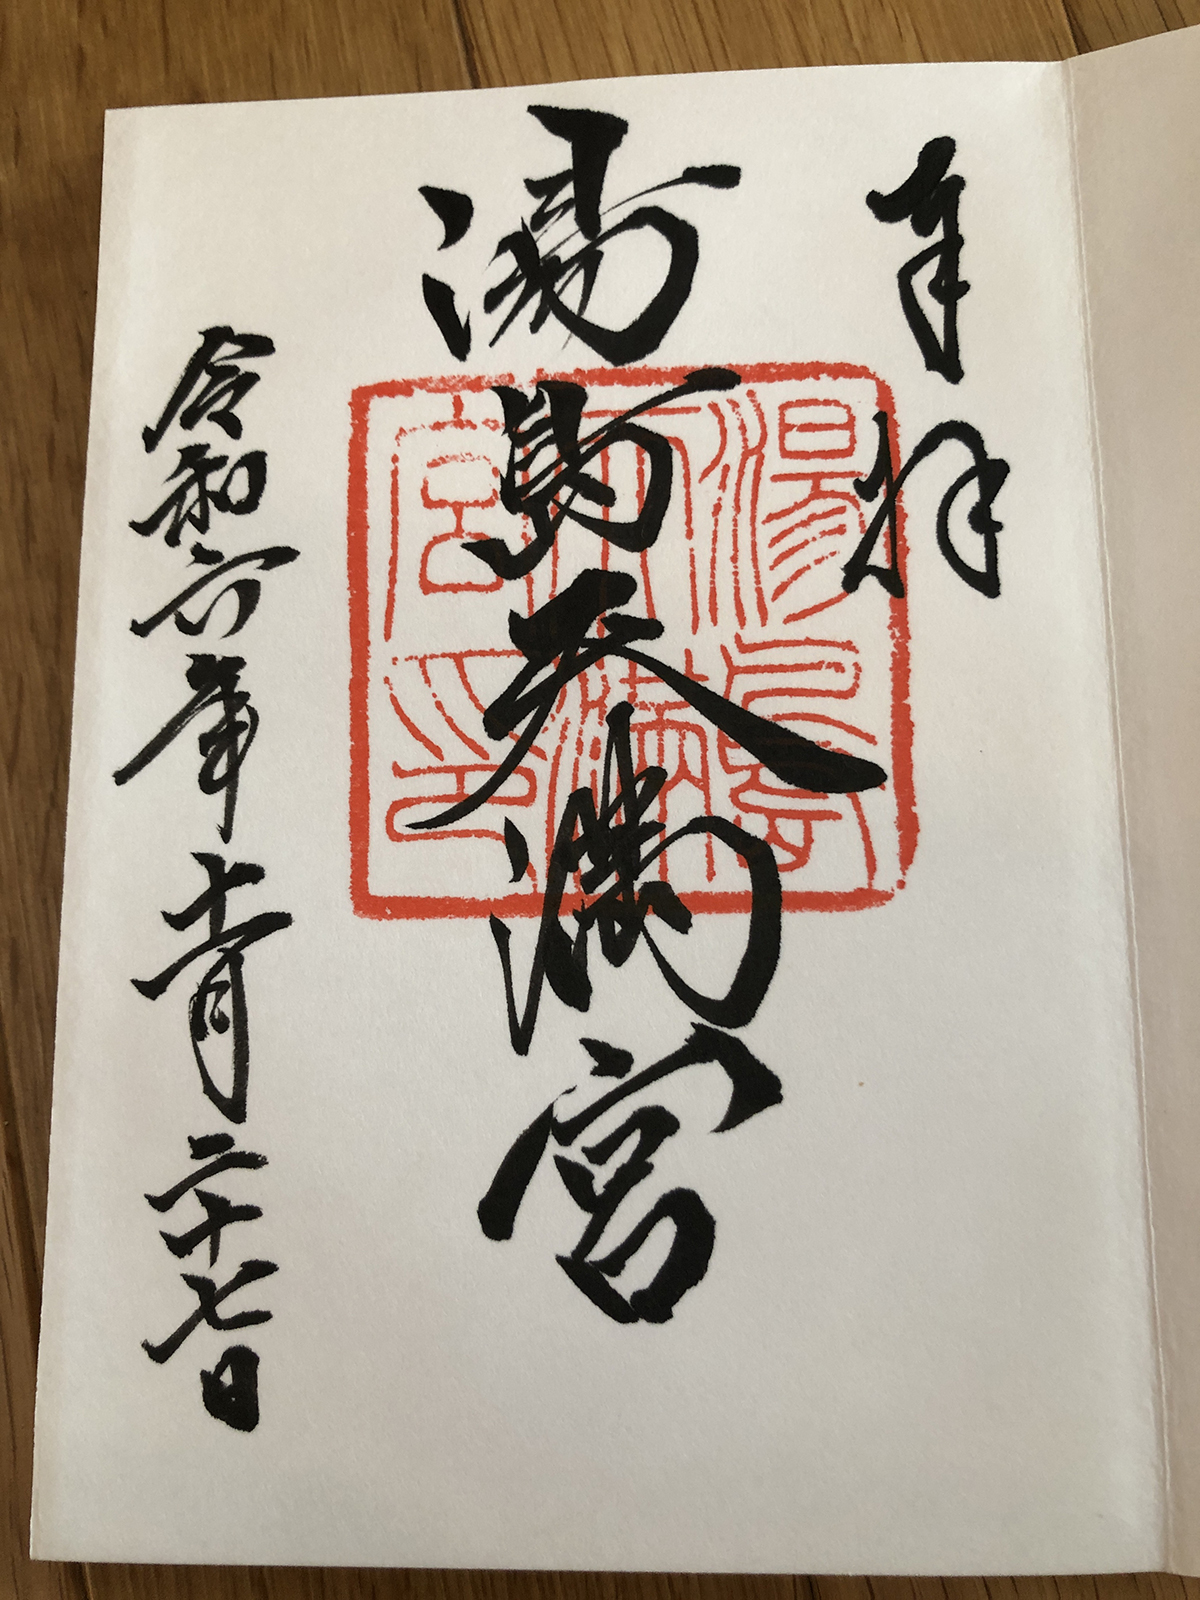 奉拝
湯島天満宮
湯島
天満
宮印
令和六年十一月二十七日